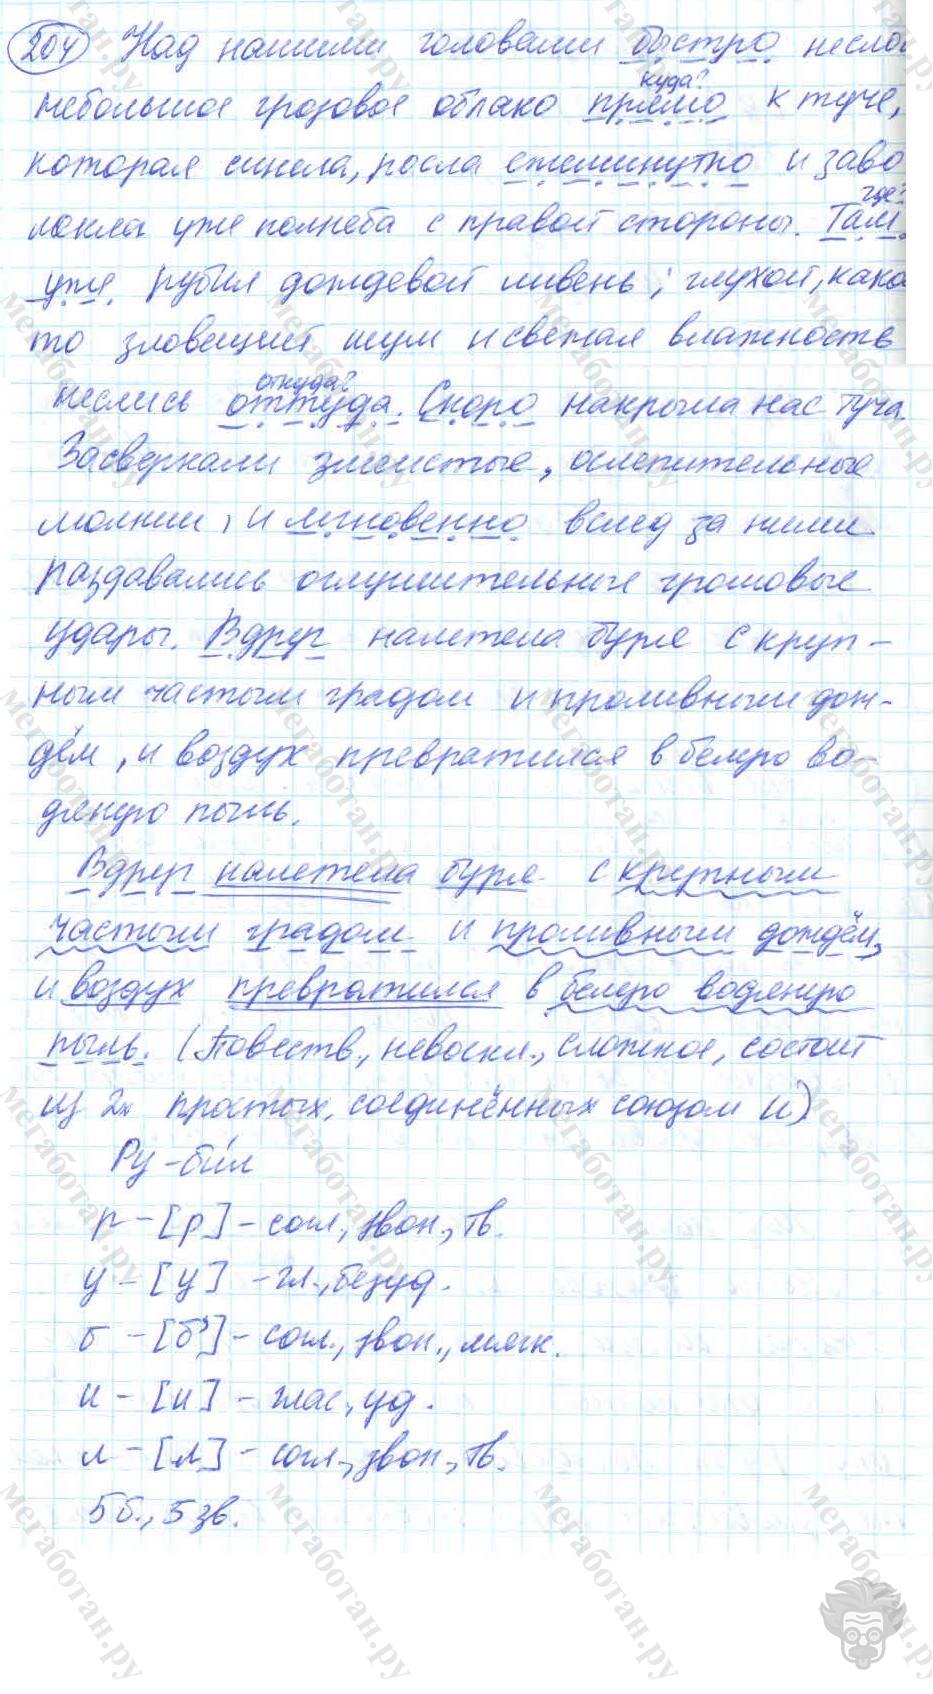 204 Над нашими головами быстро несло
куда?
небольшое грозовое облако прямо к туче,
которая синела, росла ежеминутно и заво
где?
локла уже полнеба с правой стороны. Там
уже рубил дождевой ливень; глухой, како
то зловещий шум и свежая влажность
откуда?
неслись оттуда. Скоро накрыла нас туча.
Засверкали змеистые, ослепительные
молнии, и мгновенно вслед за ними
раздавались оглушительные громовые
удары. Вдруг налетела буря с круп-
ным частым градом и проливным дож-
дём, и воздух превратился в белую во-
дяную пыль.
Вдруг налетела буря с крупным
частым градом и проливным дождём,
и воздух превратился в белую водяную
пыль. (Повеств., невоскл., сложное, состоит
из 2х простых, соединённых союзом и)
Ру-би́л
р - [р] - согл., звон., тв.
у - [у] - гл., безуд.
б - [б'] - согл., звон., мягк.
и - [и] - глас., уд.
л - [л] - согл., звон., тв.
5б., 5зв.
мегаботан.ру